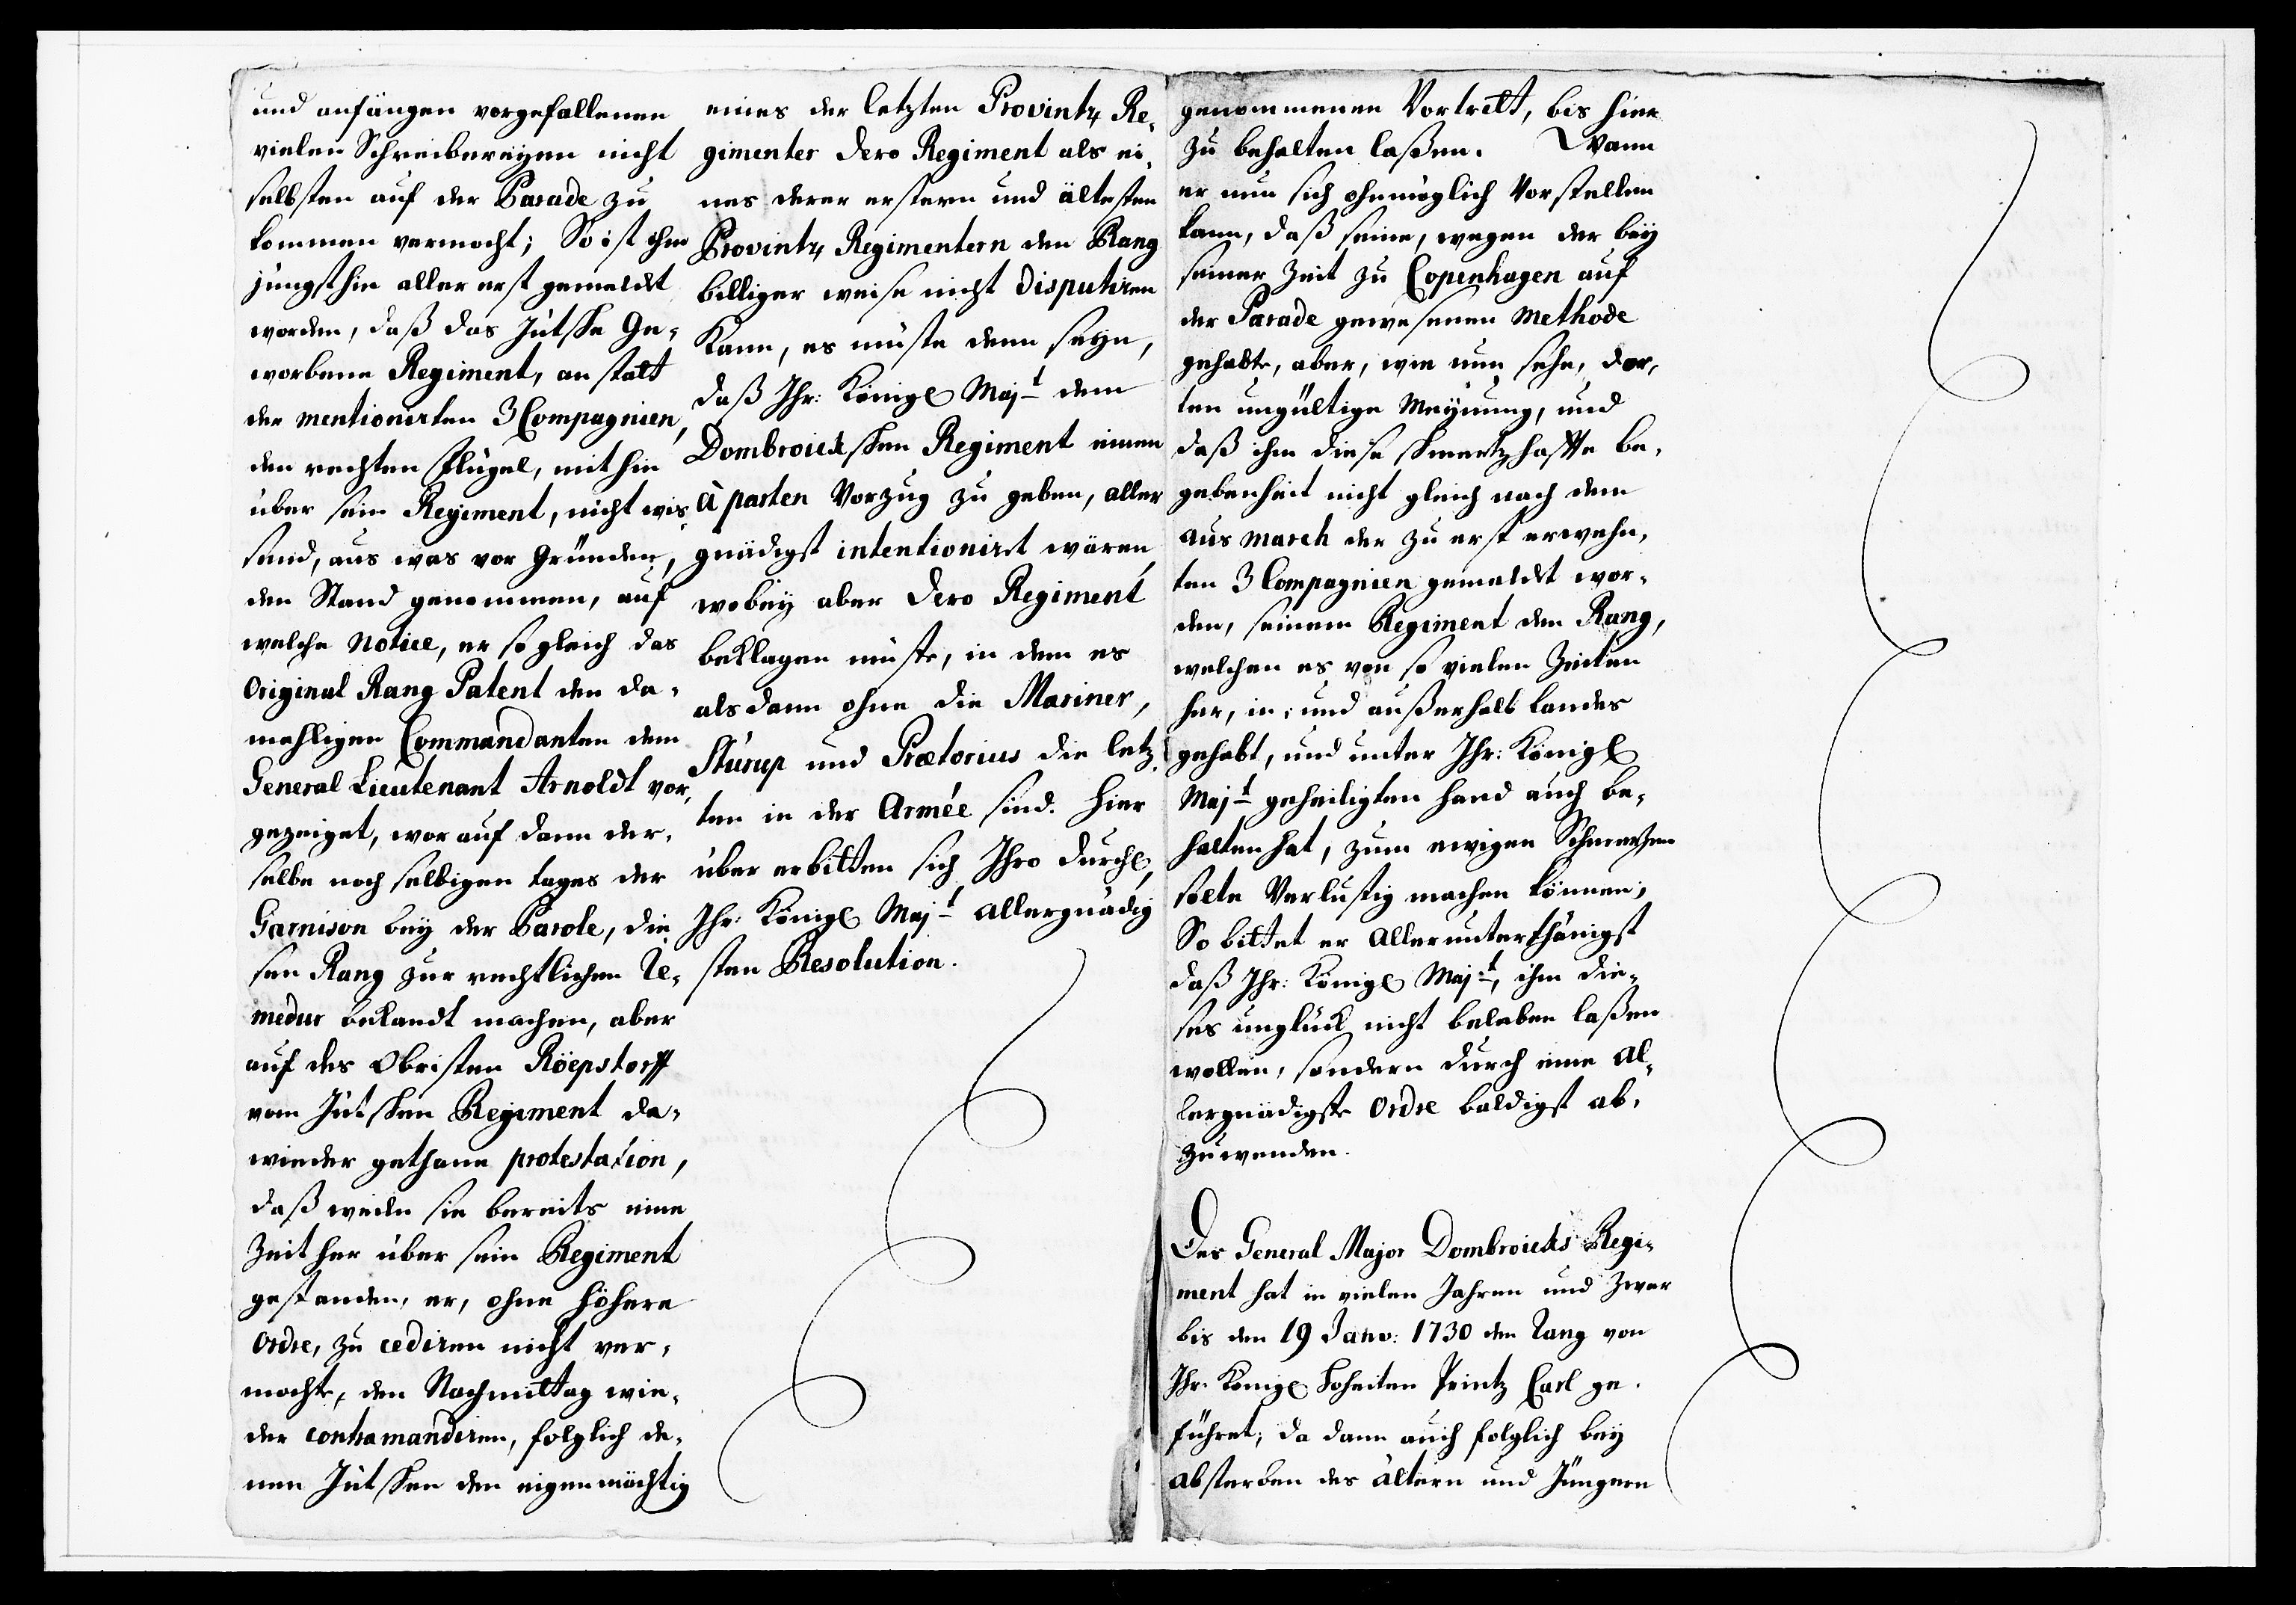 und anfängen vorgefallenen
vielen Schreibereyen nicht
selbsten auf der Parade zu
kommen vermocht; So ist ihm
jüngsthin aller erst gemeldet
worden, daß das Jütsche Ge-
worbene Regiment, an statt
der mentionirten 3 Compagnien,
den rechten Flügel, mithin
über sein Regiment, nicht wis-
send, aus was vor Gründen,
den Stand genommen, auf
welche Notice, er so gleich das
Original Rang Patent den da-
mahligen Commandanten dem
General Lieutenant Arnoldt vor-
gezeiget, worauf dann der-
selbe noch selbigen tages der
Garnison bey der Parole, die-
sen Rang zur rechtlichen Re-
medur bekandt machen, aber
auf des Obristen Röepstorff
vom Jütschen Regiment da-
wieder gethane protestation,
daß weiln sie bereits eine
Zeither über sein Regiment
gestanden, er, ohne höhere
Ordre, zu cediren nicht ver-
mochte, den Nachmittag wie-
der contramandiren, folglich de-
nen Jütschen den eigenmächtig
eines der letzten Provintz Re-
gimenter dero Regiment als ei-
nes derer erstern und ältesten
Provintz Regimentern den Rang
billiger weise nicht disputiren
Kann, es müste denn seyn,
daß Ihr: Königl Majt dem
Dombroickschen Regiment einen
à parten Vorzug zu geben, aller
gnädigst intentioniret wären,
wobey aber dero Regiment
beklagen müste, in dem es
als dann ohne die Mariner,
Sturup und Prætorius die letz-
ten in der Armée sind. Hier
über erbitten sich Ihro Durchl
Ihr: Königl Majt Allergnädig
sten Resolution.
genommenen Vortritt, bis hier
zu behalten laßen. Wann
er nun sich ohnmöglich Vorstellen
kann, daß seine, wegen der bey
seiner Zeit zu Copenhagen auf
der Parade gewesenen Methode
gehabte, aber, wie nun sehe, dor-
ten ungültige Meynung, und
daß ihm diese schmertzhaffte be-
gebenheit nicht gleich nach dem
aus march der zu erst erwehn-
ten 3 Compagnien gemeldet wor-
den, seinem Regiment den Rang,
welchen es von so vielen Zeiten
her, in- und außerhalb Landes
gehabt, und unter Ihr: Königl
Majt geheiligten Hand auch be-
halten hat, zum ewigen Schmertzen
solte Verlustig machen können;
So bittet er Allerunterthänigst
daß Ihr: Königl Majt, ihm die-
ses unglück nicht beleben laßen
wollen, sondern durch eine Al-
lergnädigste Ordre baldigst ab-
zuwenden.
Des General Major Dombroicks Regi-
ment hat in vielen Jahren und zwar
bis den 19 Janv: 1730 den Rang von
Ihr: Königl Hoheiten Printz Carl ge-
führet; da dann auch folglich bey
absterben des ältern und Jüngern